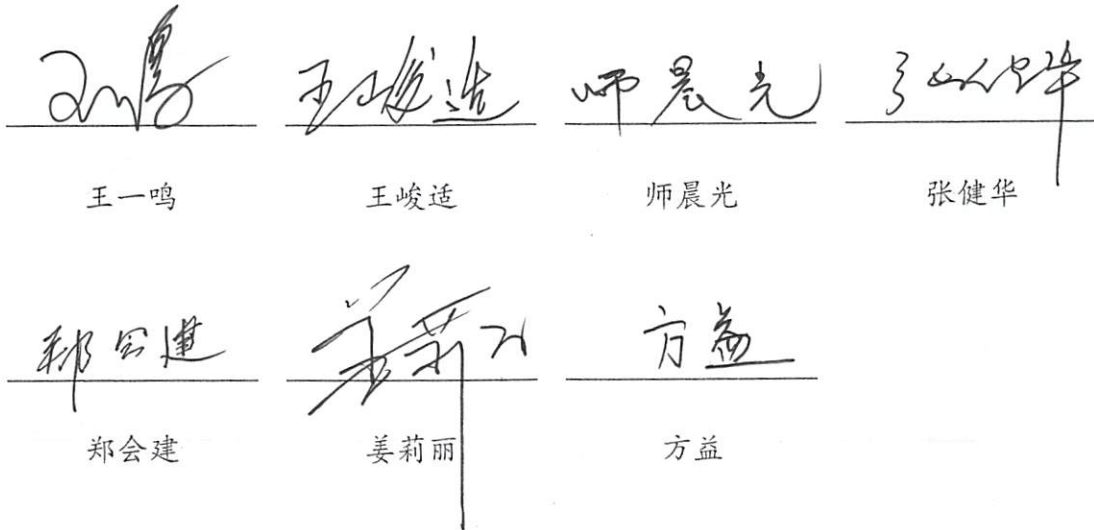 王一鸣 王峻适 师晨光 张健华
王一鸣 王峻适 师晨光 张健华
郑会建 姜莉丽 方益
郑会建 姜莉丽 方益